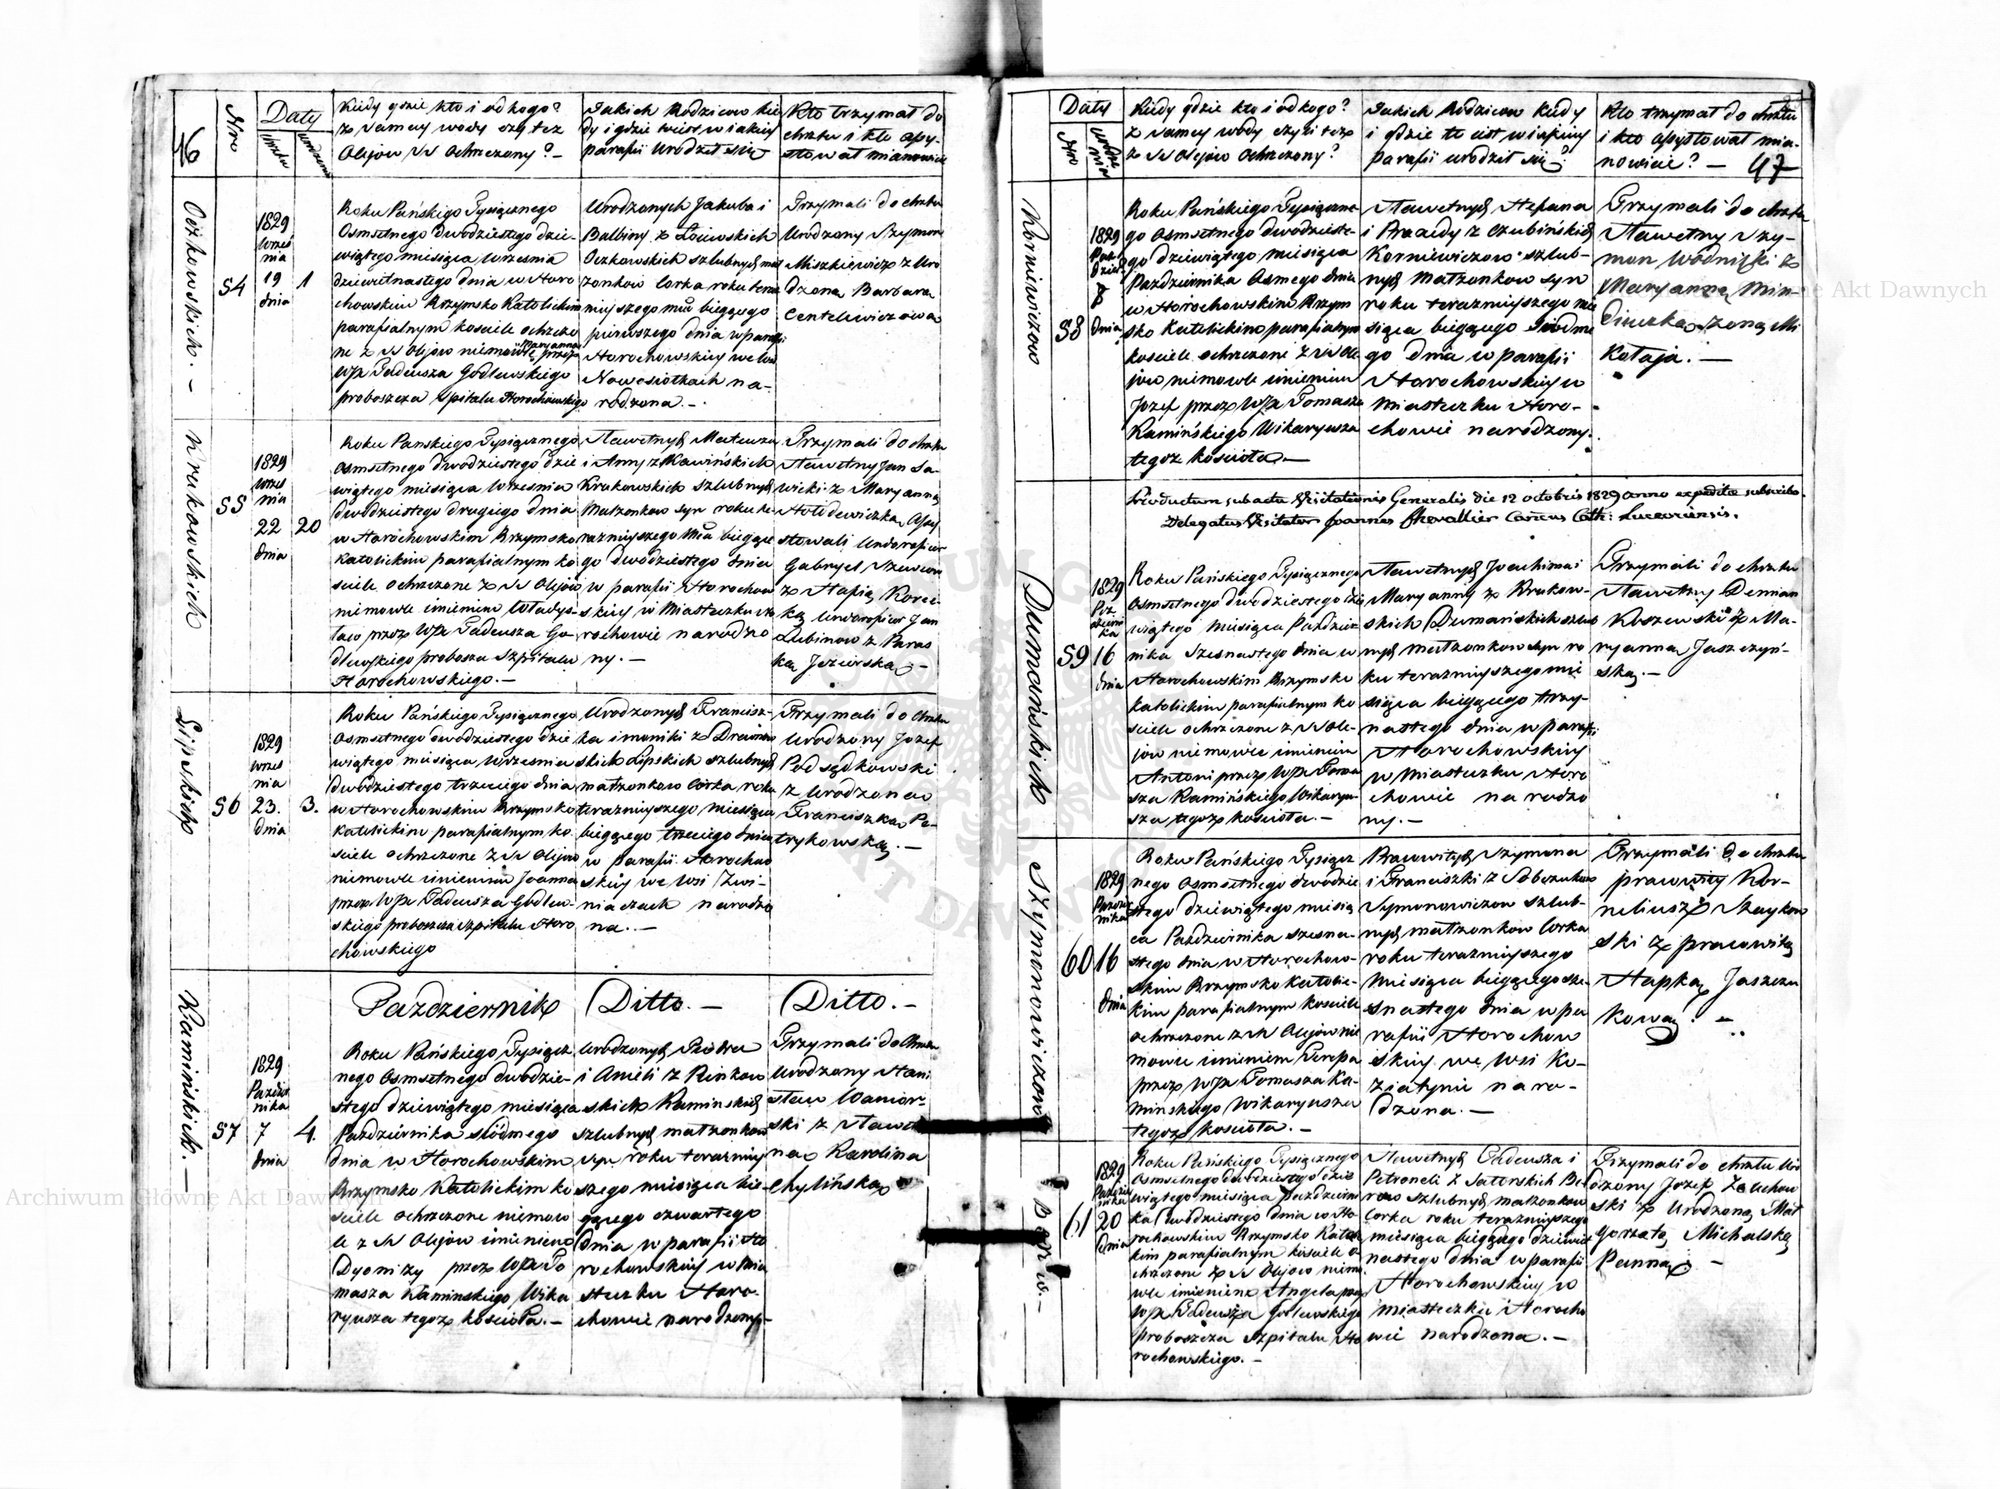 Nro
Daty
Kiedy gdzie kto i od kogo?
z samey wody czy też
Olejów SS Ochrzczony? –
Jakich Rodziców kie
dy i gdzie to iest w iakiey
parafii urodził się
Kto trzymał do
chrztu i kto assy-
stował mianowicie
Oczkowskich. –
54
1829
Wrześ
nia
19
dnia
1
Roku Pańskiego Tysiącznego
Osmsetnego dwudziestego dzie-
wiątego miesiąca Września
dziewiętnastego dnia w Horo
chowskim Rzymsko Katolickim
parafialnym kościele ochrzczo
ne z SS Olejów niemowle Maryanna przez
WJX Tadeusza Godlewskiego
proboszcza szpitalu Horochowskiego
Urodzonych Jakuba i
Balbiny z
Oczkowskich szlubnych mał
żonków corka roku tera
nieyszego mca bieżącego
pierwszego dnia w parafii
Horochowskiey we wsi
Nowosiołkach na-
rodzona. –
Trzymali do chrztu
Urodzony Szymon
Miszkiewicz z Uro
dzoną Barbarą
Centkiewiczową
Krukowskich
55
1829
Wrześ
nia
22
dnia
20
Roku Pańskiego Tysiącznego
Osmsetnego Dwudziestego dzie
wiątego miesiąca Września
dwudziestego drugiego dnia
w Horochowskim Rzymsko
Katolickim parafialnym ko
ściele ochrzczone z SS Olejów
niemowle imieniem Władys-
ław przez WJX Tadeusza Go-
dlewskiego proboszcza Szpitalu
Horochowskiego. –
Sławetnych Mateusza
i Anny z Kawińskich
Krukowskich szlubnych
Małżonków syn roku te-
raznieyszego Mca bieżące
go dwudziestego dnia
w parafii Horochow
skiey w Miasteczku Ho
rochowie narodzo
ny. –
Trzymali do chrztu
Sławetny Jan Sa-
wicki z Maryanną
Assy
stowali
Gabryel
z
Jan
z Paras
ką Jezierską –
Lipskich
56
1829
Wrześ
nia
23.
dnia
3.
Roku Pańskiego Tysiącznego
Osmsetnego dwudziestego dzie
wiątego miesiąca Września
dwudziestego trzeciego dnia
w Horochowskim Rzymsko
Katolickim parafialnym ko
ściele ochrzczone z SS Olejów
niemowle imieniem Joanna
przez WJX Tadeusza Godlew-
skiego proboszcza szpitalu Horo
chowskiego
Urodzonych Francisz-
ka i Moniki z
skich Lipskich szlubnych
małżonków Córka roku
terazneyszego miesiąca
bieżącego trzeciego dnia
w parafii Horochow
skiey we Wsi Zwi-
niaczach narodzo
na. –
Trzymali do Chrztu
Urodzony Jozef
Podsędkowski
z Urodzoną
Franciszką Pa-
trykowską. –
Październik
Ditto. –
Ditto. –
Kamińskich. –
57
1829
Paździer
nika
7
dnia
4.
Roku Pańskiego Tysiącz
nego Osmsetnego dwudzie-
stego dziewiątego miesiąca
Października siódmego
dnia w Horochowskim
Rzymsko Katolickim ko
ściele ochrzczone niemow
le z SS Olejów imieniem
Dyonizy przez WJX To
masza Kamińskiego Wika
ryusza tegoż kościoła. –
Urodzonych Piotra
i Anieli z
skich Kamińskich
szlubnych małżonków
syn roku teraznieÿ
szego miesiąca bie-
żącego czwartego
dnia w parafii Ho
rochowskiey w Mia
steczku Horo-
chowie narodzony –
Trzymali do Chrztu
Urodzony Stani
sław
ski z Sławet
ną Karoliną
Chylińską
47
Daty
Nro
Kiedy gdzie kto i od kogo?
z samey wody czyli też
z SS Olejów Ochrzczony?
Jakich Rodziców kiedy
i gdzie to iest w iakiey
parafii urodził się?
Kto trzymał do chrztu
i kto assystował mia-
nowicie? –
Korniewiczow
58
1829
Paź
dzier
8
dnia
Roku Pańskiego Tysiączne
go Osmsetnego dwudzieste-
go dziewiątego miesiąca
Października Osmego dnia
w Horochowskim Rzym
sko Katolickim parafialnym
kościele ochrzczone z SS Ole
jów niemowle imieniem
Jozef przez WJX Tomasza
Kamińskiego Wikaryusza
tegoż kościoła –
Sławetnych Stefana
i Praxedy z Czubińskich
Korniewiczow szlub-
nych Małżonków syn
roku teraznieyszego mie
siąca bieżącego Siódme
go dnia w parafii
Horochowskiey w
Miasteczku Horo-
chowie narodzony.
Trzymali do chrztu
Sławetny Szy-
mon Wodnicki z
Maryanną
żoną Mi
kołaja. –
Productum sub actu Visitationis Generalis die 12 octobris 1829 anno expedito subscribo.
Delegatus Visitator Joannes Chevallier Canicus Cath: Luceoriensis.
Dumańskich
59
1829
Paź
dzierni
ka
16
dnia
Roku Pańskiego Tysiącznego
Osmsetnego dwudziestego dzie
wiątego Miesiąca Paździer
nika Szesnastego dnia w
Horochowskim Rzymsko
katolickim parafialnym ko
ściele ochrzczone z SS Ole-
jów niemowle imieniem
Antoni przez WJX Toma
sza Kamińskiego Wikaryu-
sza tegoż kościoła. –
Sławetnych Joachima i
Maryanny z Krukow-
skich Dumańskich szlub
nych małżonków syn ro
ku teraznieyszego mie
siąca bieżącego trzy-
nastego dnia w parafii
Horochowskiey
w Miasteczku Horo
chowie narodzo
ny. –
Trzymali do chrztu
Sławetny Demian
Koszewski z Ma-
ryanną Jaszczyń-
ską. –
Szymonowiczow
60
1829
Paździer
nika
16
dnia
Roku Pańskiego Tysiącz
nego Osmsetnego dwudzie
stego dziewiątego miesią
ca Października szesna-
stego dnia w Horochow-
skim Rzymsko Katolic-
kim parafialnym kościele
ochrzczone z SS Olejów nie
mowle imieniem
przez WJX Tomasza Ka-
mińskiego Wikaryusza
tegoż kościoła. –
Pracowitych Szymona
i Franciszki z
Szymonowiczow szlub-
nych małżonków Corka
roku teraznieyszego
Miesiąca bieżącego sze-
snastego dnia w pa
rafii Horochow
skiey we Wsi Ko-
ziatynie naro-
dzona. –
Trzymali do chrztu
pracowity Kor-
neliusz
ski z pracowitą
kową. –
61
1829
Paździer
nika
20
dnia
Roku Pańskiego Tysiącznego
Osmsetnego dwudziestego dzie
wiątego miesiąca Październi
ka dwudziestego dnia w Ho
rochowskim Rzymsko Katolic
kim parafialnym kościele o-
chrzczone z SS Olejów niemo
wle imieniem Angela przez
WJX Tadeusza Godlewskiego
proboszcza Szpitalu Ho
rochowskiego. –
Sławetnych Tadeusza i
Petroneli z
szlubnych małżonków
Corka roku teraznieyszego
miesiąca bieżącego dziewięt
nastego dnia w parafii
Horochowskiey w
miasteczku Horocho
wie narodzona. –
Trzymali do chrztu Uro
dzony Jozef
ski z Urodzoną Mał
gorzatą Michalską
Panną. –
Archiwum Główne Akt Dawnych